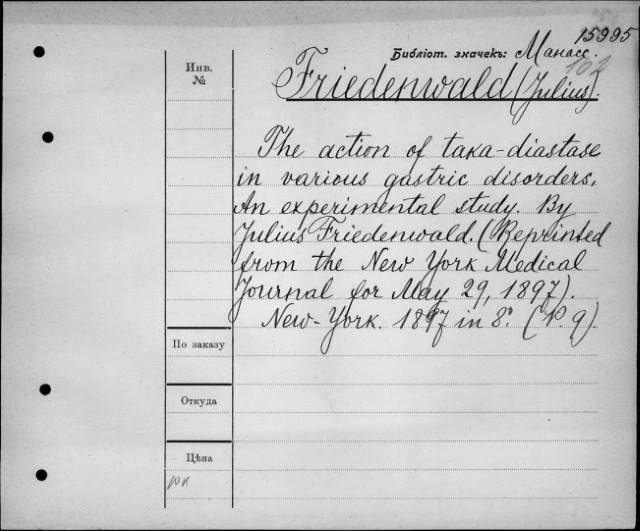 15995
Библіот. значекъ: Манасс.
102
Инв.
№
Friedenwald (Julius).
The action of taka-diastase
in various gastric disorders.
An experimental study. By
Julius Friedenwald. (Reprinted
from the New York Medical
Journal for May 29, 1897).
New-York. 1897 in 8°. (P. 9).
По заказу
Откуда
Цѣна